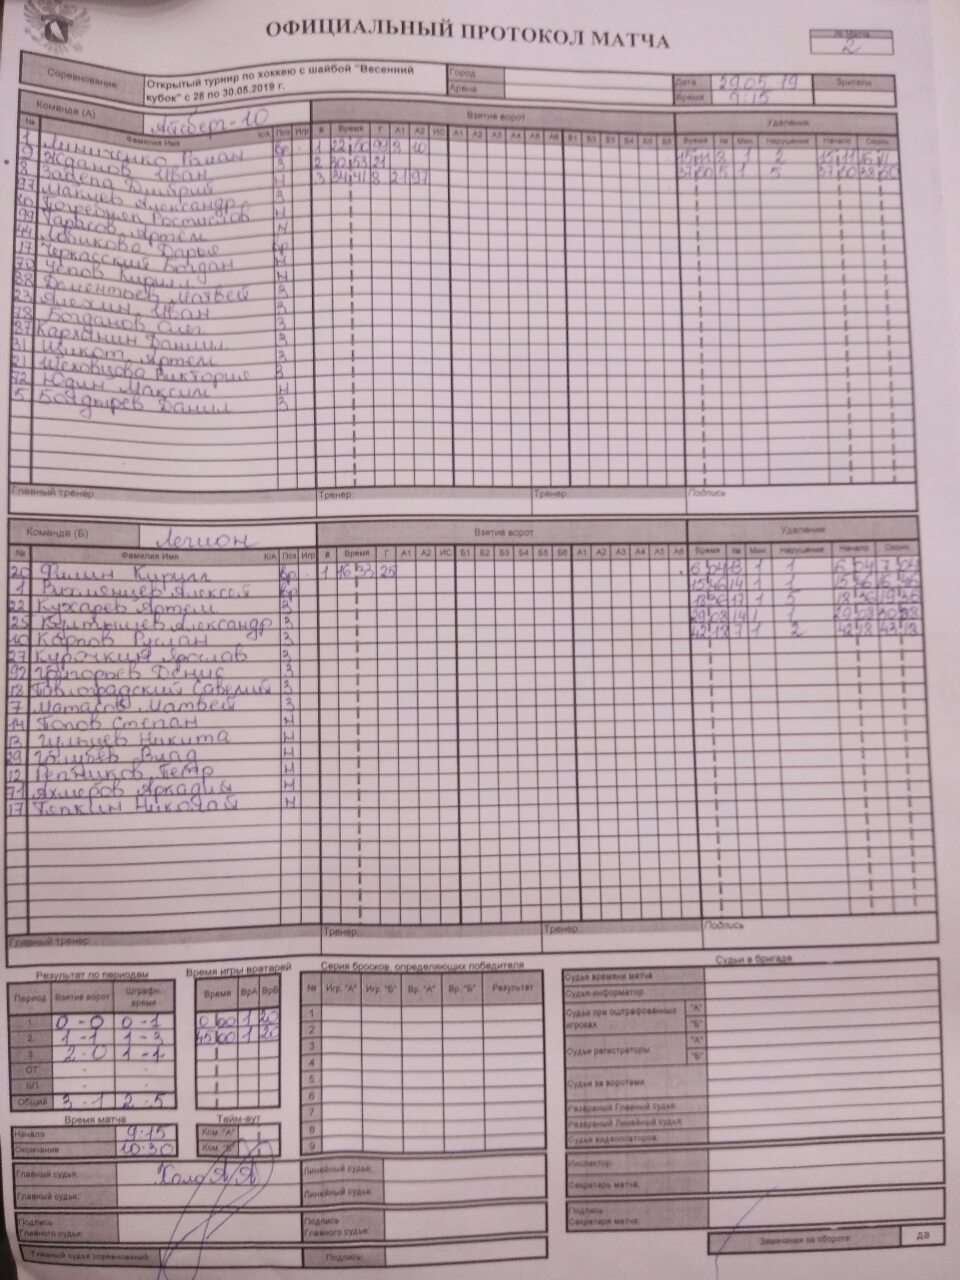 ОФИЦИАЛЬНЫЙ ПРОТОКОЛ МАТЧА
№ Матча 2
Соревнование: Открытый турнир по хоккею с шайбой "Весенний кубок" с 28 по 30.05.2019 г.
Город Дата 29 05 19 Зрители
Арена Время 9:15
Команда (А) Айсберг-10 Взятие ворот Удаления
№ Фамилия Имя К/А Поз Игр # Время Г А1 А2 ИС Время № Мин Нарушение Начало Оконч.
1 Линиченко Роман Вр 1 22 50 99 8 10 15 11 8 1 2 15 11 16 11
9 Жданов Иван З 2 30 53 21 37 50 5 1 5 37 50 38 50
8 Зацепа Дмитрий Н 3 34 41 8 21 97
97 Макцев Александр З
10 Погребняк Ростислав Н
99 Тарасов Артём Н
44 Новикова Дарья Вр
17 Черкасский Богдан Н
70 Попов Кирилл Н
88 Дементьев Матвей З
23 Алехин Иван З
78 Богданов Олег З
87 Карханин Даниил З
31 Щикот Артем З
21 Шеховцова Виктория З
72 Юдин Максим Н
5 Болдырев Данил З
Главный тренер: Тренер: Тренер: Подпись
Команда (Б) Легион Взятие ворот Удаления
№ Фамилия Имя К/А Поз Игр # Время Г А1 А2 ИС Б1 Б2 Б3 Б4 Б5 Б6 А1 А2 А3 А4 А5 А6 Время № Мин Нарушение Начало Оконч.
20 Филин Кирилл Вр 1 16 33 25 6 04 13 1 1 6 04 7 04
1 Алексей Вр 15 46 14 1 1 15 46 16 46
22 Кухарев Артем З 18 36 17 1 5 18 36 19 36
25 Александр З 29 08 14 1 1 29 08 30 08
10 Карпов Руслан З 42 18 7 1 2 42 18 43 18
27 Курочкин Ярослав З
92 Григорьев Денис З
18 Павлоградский Савелий З
7 Матасов Матвей З
14 Попов Степан Н
13 Никита Н
29 Голубев Влад Н
12 Репников Петр Н
71 Ахмедов Аркадий Н
17 Пепкин Николай Н
Главный тренер: Тренер: Тренер Подпись
Результат по периодам
Период Взятие ворот Штрафн. время
1 0 - 0 0 - 1
2 1 - 1 1 - 3
3 2 - 0 1 - 1
ОТ - -
БП - -
Общий 3 - 1 2 - 5
Время игры вратарей
Время ВрА ВрБ
0 00 1 20
45 00 1 20
Серия бросков, определяющих победителя
№ Игр. "А" Игр. "Б" Вр. "А" Вр. "Б" Результат
1
2
3
4
5
6
7
8
9
Судьи в бригаде
Судья времени матча
Судья-информатор
Судьи при оштрафованных игроках "А" "Б"
Судьи регистраторы "А" "Б"
Судьи за воротами
Резервный Главный судья:
Резервный Линейный судья
Судья видеоповторов:
Инспектор:
Секретарь матча:
Подпись Секретаря матча:
Замечания на обороте: да
Время матча
Начало 9-15
Окончание 10-30
Тайм-аут
Ком. "А"
Ком. "Б"
Главный судья: Линейный судья:
Главный судья: Линейный судья
Подпись Главного судьи: Подпись Главного судьи:
Главный судья соревнований: Подпись: